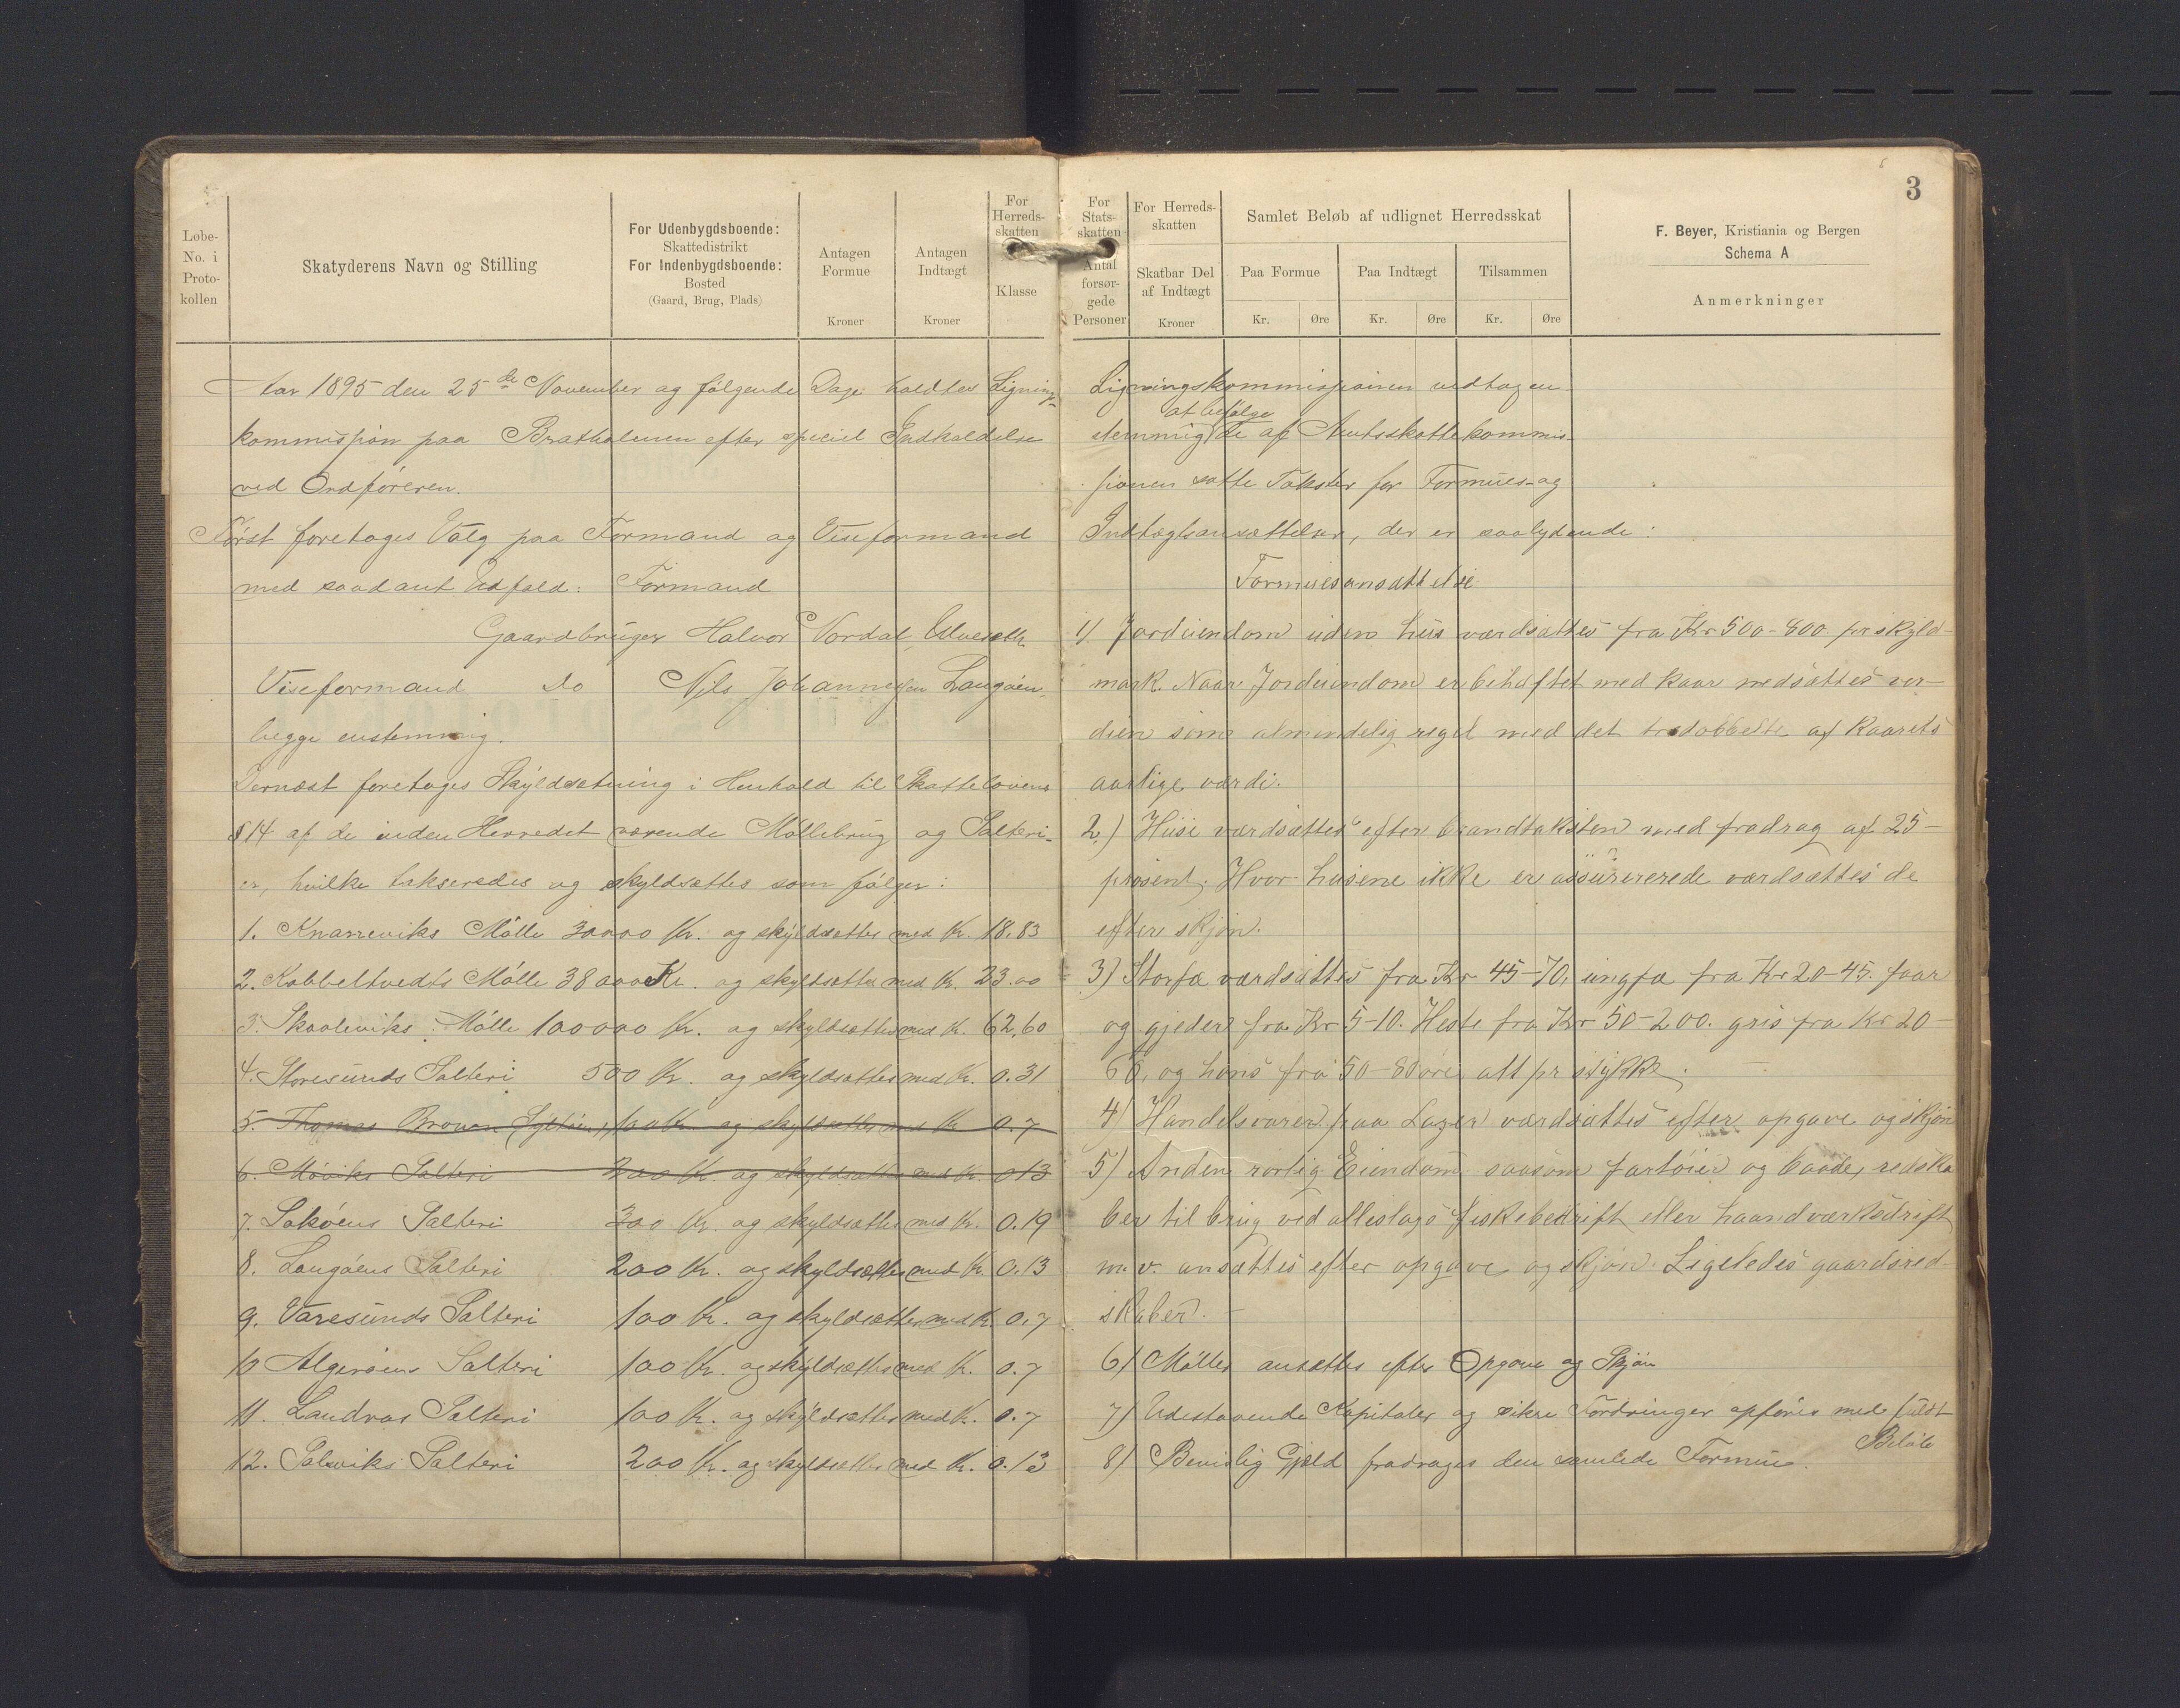 Løbe-
No. i
Proto-
kollen
Skatyderens Navn og Stilling
For Udenbygdsboende:
Skattedistrikt
For Indenbygdsboende:
Bosted
(Gaard, Brug, Plads)
Antagen
Formue
Kroner
Antagen
Indtægt
Kroner
For
Herreds-
skatten
Klasse
Aar 1895 den 25de November og følgende Dage holdtes Lignings-
kommission paa Bratholmen efter speciel Indkaldelse
ved Ordføreren.
Først foretoges Valg paa Formand og Viseformand
med saadant Udfald: Formand
Gaardbruger Halvor Nordal,
Viseformand do Nils Johannessen Langøen,
begge enstemmig.
Dernæst foretoges Skyldsætning i Henhold til Skattelovens
§ 14 af de inden Herredet værende Møllebrug og Salteri-
er, hvilke takseredes og skyldsættes som følger:
1. Knarreviks Mølle 30000 Kr. og skyldsættes med Kr. 18.83
2. Kobbeltvedts Mølle 38000 Kr. og skyldsættes med Kr. 23.00
3. Skaaleviks Mølle 100000 Kr. og skyldsættes med Kr. 62,60
4. Storesunds Salteri 500 Kr. og skyldsættes med Kr. 0.31
5. Thomas 100 Kr og skyldsættes med Kr 0.7
6. Møviks Salteri 200 Kr. og skyldsættes med Kr. 0 13
7. Lokøens Salteri 300 Kr. og skyldsættes med Kr. 0.19
8. Langøens Salteri 200 Kr. og skyldsættes med Kr. 0.13
9. Varesunds Salteri 100 Kr. og skyldsættes med Kr. 0.7
10 Algerøens Salteri 100 Kr. og skyldsættes med Kr. 0.7
11. Landros Salteri 100 Kr. og skyldsættes med Kr. 0.7
12. Solviks Salteri 200 Kr. og skyldsættes med Kr. 0.13
3
For
Stats-
skatten
Antal
forsør-
gede
Personer
For Herreds-
skatten
Skatbar Del
af Indtægt
Kroner
Samlet Beløb af udlignet Herredsskat
Paa Formue
Kr. Øre
Paa Indtægt
Kr. Øre
Tilsammen
Kr. Øre
F. Beyer, Kristiania og Bergen
Schema A
Anmerkninger
Ligningskommissionen vedtog en-
at befølge
stemmig de af Amtsskattekommis-
sionen satte Takster for Formues- og
Indtægtsansættelser, der er saalydende:
Formuesansættelse
1) Jordeiendom uden hus værdsættes fra Kr 500-800 pr skyld-
mark. Naar Jordeiendom er behæftet med kaar nedsættes ver-
dien som almindelig regel med det tredobbelte af kaarets
aarlige værdi.
2.) Huse værdsættes efter brandtaksten med fradrag af 25
prosent. Hvor husene ikke er assurererede værdsættes de
efter skjøn.
3) Storfæ værdsættes fra Kr 45-70, ungfæ fra Kr 20-45. faar
og gjeder fra Kr 5-10. Heste fra Kr 50-200. gris fra Kr 20-
60, og høns fra 50-80 øre alt pr stykke.
4) Handelsvarer paa Lager værdsættes efter opgave og skjøn
5) Anden rørlig Eiendom saasom fartøier og baade, redska
ber til brug ved alleslags fiskebedrift eller haandværksdrift
m. v. ansættes efter opgave og skjøn. Ligeledes gaardsred-
skaber.
6) Møller ansættes efter Opgave og Skjøn
7) Udestaaende Kapitaler og sikre Fordringer opføres med fuldt
Beløb
8) Bevislig Gjæld fradrages den samlede Formue.